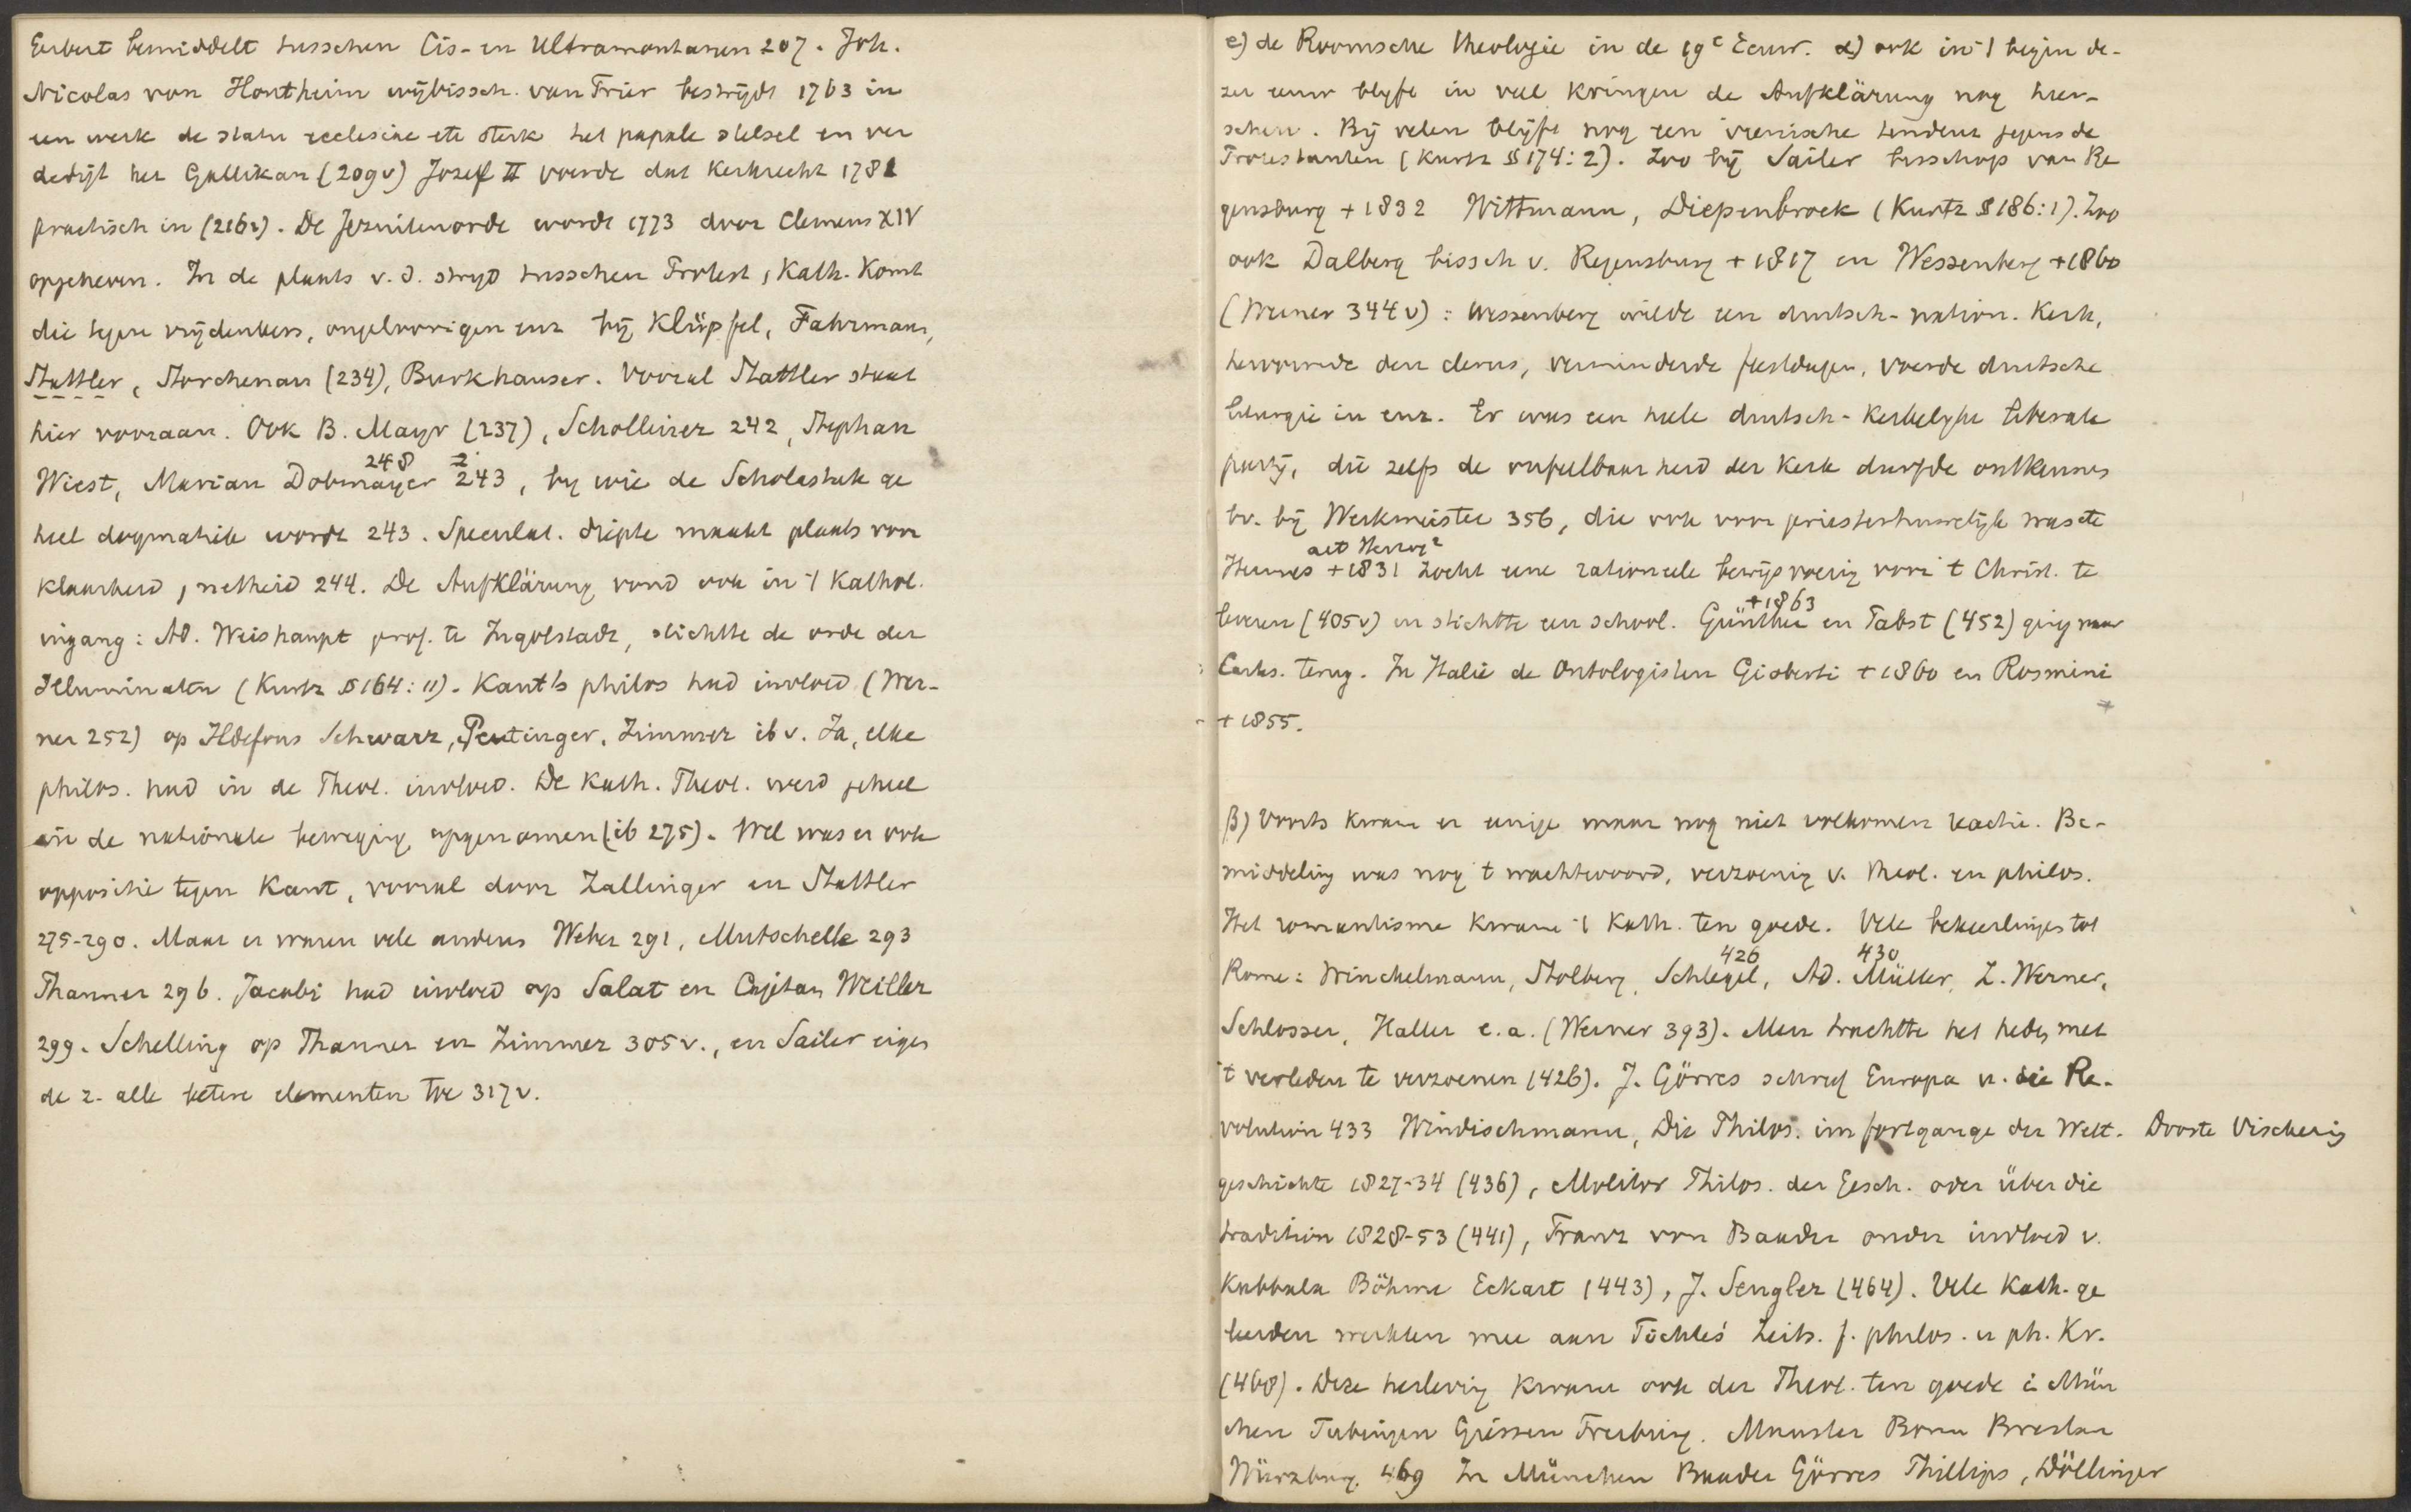 Gerbert bemiddelt tusschen Cis- en Ultramontanen 207. Joh.
Nicolas von Hontheim wijbissch. van Trier bestrijdt 1763 in
een werk de statu ecclesiae etc sterk het papale stelsel en ver
dedigt het Gallikan (209v) Jozef II voerde dat Kerkrecht 1781
practisch in (216v). De Jezuitenorde wordt 1773 door Clemens XIV
opgeheven. In de plaats v. d. strijd tusschen Protest, Kath. Komt
die tegen vrijdenkers, ongeloovigen enz bij Klüpfel, Fahrmann,
Stattler, Storchenau (234), Burkhauser. Vooral Stattler staat
hier vooraan. Ook B. Mayr (237), Schollirer 242, Stephan
248 2
Wiest, Marian Dobmayer 243, by wie de Scholastiek ge
heel dogmatiek wordt 243. Speculat. diepte maakt plaats voor
klaarheid, netheid 244. De Aufklärung vond ook in 't Kathol.
ingang: Ad. Weishaupt prof. te Ingolstadt, stichtte de orde der
Illuminaten (Kurtz § 164: 11). Kant's philos had invloed (Wer-
ner 252) op Ildefons Schwarz, Peutinger, Zimmer ib v. Ja, elke
philos. had in de Theol. invloed. De Kath. Theol. werd geheel
in de nationale beweging opgenomen (ib 275). Wel was er ook
oppositie tegen Kant, vooral door Zallinger en Stattler
275-290. Maar er waren vele anders Weber 291, Mutschelle 293
Thanner 296. Jacobi had invloed op Salat en Cajetan Weiller
299. Schelling op Thanner en Zimmer 305v., en Sailer eigen
de z. alle betere elementen toe 317v.
e) de Roomsche theologie in de 19e Eeuw. α) ook in 't begin de-
zer eeuw blyft in veel kringen de Aufklärung nog heer-
schen. Bij velen blijft nog een irenische tendenz jegens de
Protestanten (Kurtz § 174: 2). Zoo bij Sailer bisschop van Re
gensburg + 1832 Wittmann, Diepenbrock (Kurtz § 186: 1). Zoo
ook Dalberg bissch v. Regensburg + 1817 en Wessenberg + 1860
(Werner 344v): Wessenberg wilde een duitsch-nation. Kerk,
hervormde den clerus, verminderde feestdagen, voerde duitsche
liturgie in enz. Er was een heele duitsch-kerkelyke liberale
partij, die zelfs de onfeilbaarheid der Kerk durfde ontkennen
bv. bij Werkmeister 356, die ook voor priesterhuwelijk was etc
art Herzog2
Hermes + 1831 zocht eene rationeele bewijsvoering voor 't Christ. te
+ 1863
leveren (405v) en stichtte een school. Günther en Pabst (452) ging naar
Cartes. terug. In Italië de Ontologisten Gioberti + 1860 en Rosmini
+ 1855.
β) Voorts kwam er eenige maar nog niet volkomen reactie. Be-
middeling was nog 't wachtwoord, verzoening v. theol. en philos.
Het romantisme kwam 't Kath. ten goede. Vele bekeerlinges tot
426 430
Rome: Winckelmann, Stolberg, Schlegel, Ad. Müller, Z. Werner,
Schlosser, Haller e.a. (Werner 393). Men trachtte het heden met
't verleden te verzoenen (426). J. Görres schreef Europa u. die Re-
volution 433 Windischmann, Die Philos. im fortgange der Welt- Droste Vischering
geschichte 1827-34 (436), Molitor Philos. der Gesch. oder über die
tradition 1828-53 (441), Franz von Baader onder invloed v.
Kabbala Böhme Eckart (443), J. Sengler (464). Vele Kath. ge
leerden werkten mee aan Fichte's Zeits. f. philos. u ph. Kr.
(468). Deze herleving kwam ook der Theol. ten goede i. Mün
chen Tubingen Giessen Freiburg. Munster Bonn Breslau
Würzburg. 469 In München Baader Görres Phillips, Döllinger